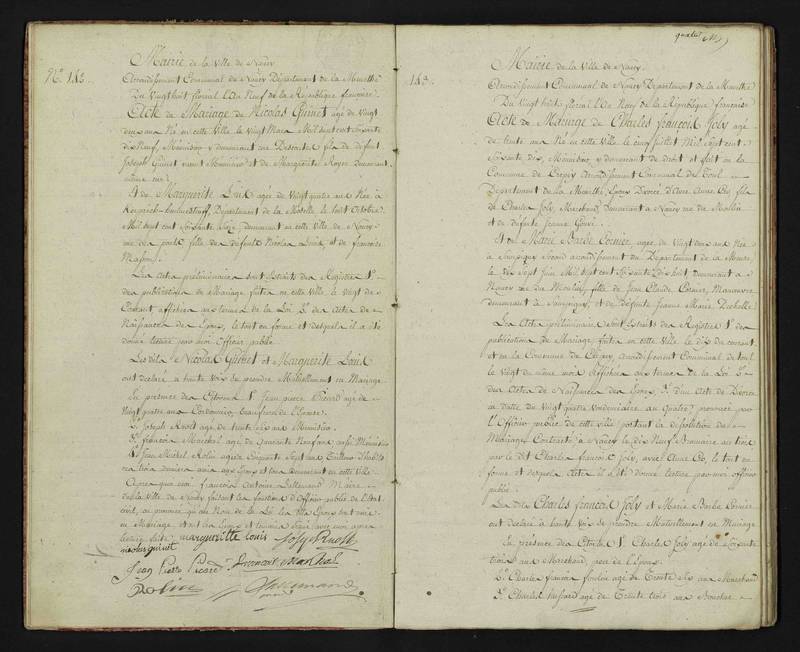 Mairie de la Ville de Nancy
N.° 142.
Arrondissement Communal de Nancy Département de la Meurthe
Du Vingt huit floréal l'An Neuf de la République française
Acte de Mariage de Nicolas Guinet agé de Vingt
deux ans Né en cette Ville le Vingt Mars Mil Sept cent soixante
dix Neuf, Menuisier y demeurant fils de défunt
Joseph Guinet vivant Menuisier et de Marguerite Royer demeurant
même rue
Et de Marguerite Louis agée de Vingt quatre ans Née à
Département de la Moselle le huit Octobre
Mil Sept cent Soixante Seize, demeurant en cette Ville de Nancy
rue fille de défunt Nicolas Louis et de françoise
Masson
Les Actes préliminaires sont Extraits des Registres 1.°
des publications de Mariage faites en cette Ville le Vingt de
Courant affichées aux termes de la Loi 2.° des Actes de
Naissances des Epoux, le tout en forme et desquels il a été
donné lecture par moi Officier public
Les dits Nicolas Guinet et Marguerite Louis
ont déclaré à haute voix se prendre Mutuellement en Mariage
En présence des Citoyens 1.° Jean pierre Picard agé de
Vingt quatre ans Cordonnier, de l'Epouse
2.° Joseph Knoll agé de trente six ans Menuisier
3.° françois Maréchal agé de Quarante Neuf ans aussi Menuisier
4.° Jean Michel Rolin agé de Cinquante Sept ans Tailleur d'habits
les trois derniers amis des Epoux et tous demeurant en cette Ville
Après quoi moi françois Antoine Lallemand Maire
de la Ville de Nancy faisant les fonctions d'Officier public de l'état
civil, ai prononcé qu'au Nom de la Loi les dits Epoux sont unis
en Mariage et ont les Epoux et témoins Signé avec moi après
lecture faite margueritte louis Josep Knoll
nicolas guinet
Jean Pierre Picard
Rolin Lallemand
maire
Mairie de la Ville de Nancy.
143.
Arrondissement Communal de Nancy Département de la Meurthe
Du Vingt huit floréal l'An Neuf de la République française
Acte de Mariage de Charles françois Joly agé
de trente ans Né en cette Ville le cinq Juillet Mil Sept cent
Soixante dix, Menuisier y demeurant de droit et fait en la
Commune de Crépey Arrondissement Communal de Toul
Département de la Meurthe, Epoux Divorcé d'avec Anne fils
de Charles Joly, Marchand, demeurant à Nancy rue du Moulin
et de défunte Jeanne
Et de Marie Barbe Cornier agée de Vingt deux ans Née
à Sampigny Second arrondissement du Département de la Meuse,
le dix Sept Juin Mil Sept cent Soixante Dix huit, demeurant à
Nancy rue du Moulin, fille de Jean Claude Cornier, Manœuvre
demeurant à Sampigny, et de défunte Jeanne Marie
Les Actes préliminaires sont Extraits des Registres 1.° des
publications de Mariage faites en cette Ville le dix du courant
et en la Commune de Crépey, Arrondissement Communal de toul
le Vingt du même mois, Affichées aux termes de la Loi 2.°
des Actes de Naissances des Epoux, 3.° d'un Acte de Divorce
en datte du Vingt quatre Vendemiaire an Quatre, prononcé par
l'Officier public de cette ville portant la dissolution du
Mariage Contracté à Nancy le dix Neuf Brumaire an trois
par le dit Charles françois Joly, avec Anne le tout en
forme et desquels Actes il a été donné lecture par moi officier
public
Les dits Charles françois Joly et Marie Barbe Cornier
ont déclaré à haute voix se prendre Mutuellement en Mariage
En présence des Citoyens 1.° Charles Joly agé de Soixante
trois ans Marchand, père de l'Epoux
2.° Charles françois agé de Trente Six ans Marchand
3.° Charles agé de Trente trois ans Boucher